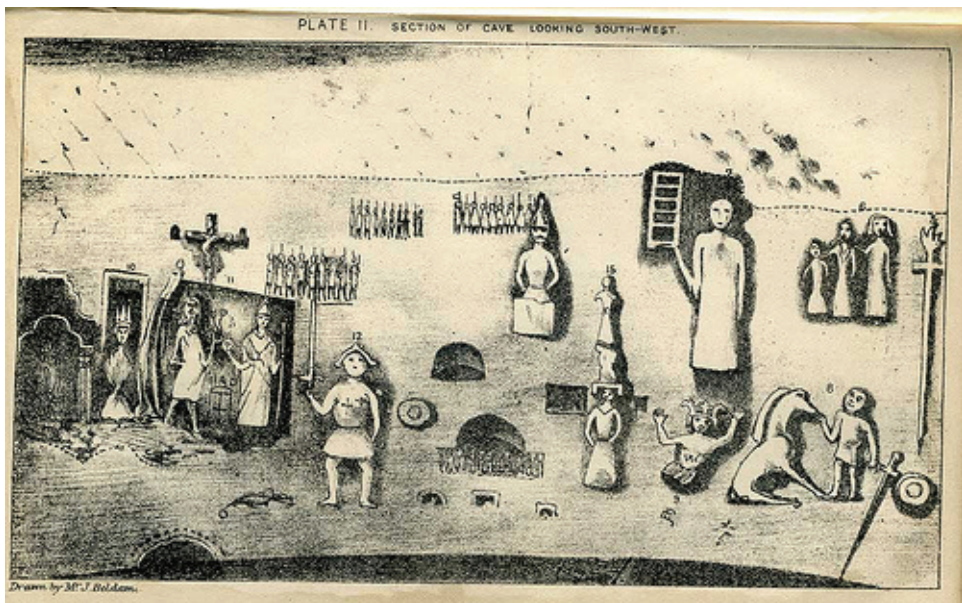 PLATE II. SECTION OF CAVE LOOKING SOUTH-WEST.
7
6
10
11
15
12
8
Drawn by Mr. J. Beldam.